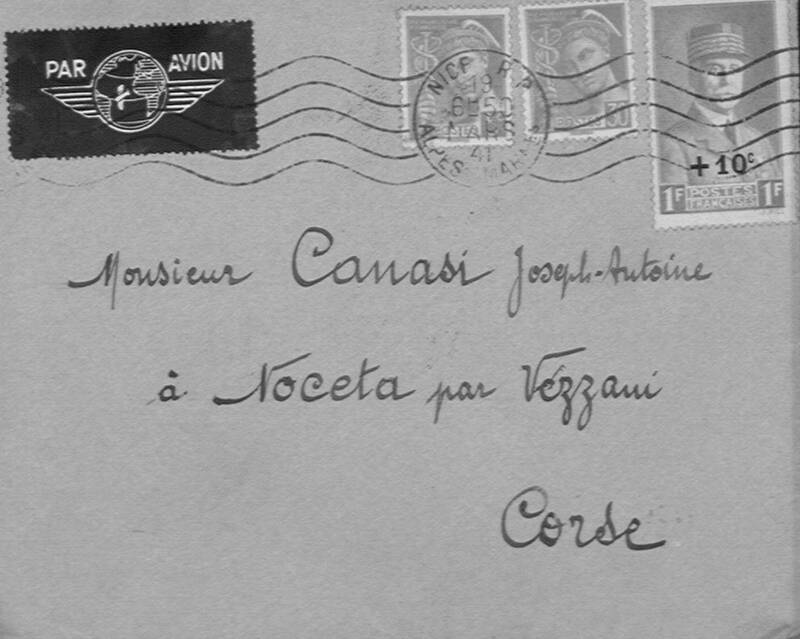 PAR AVION
NICE R.P.
19
6H50
MARS
41
ALPES MARMES
30
+10c
1F POSTES FRANÇAISES 1F
Monsieur Canasi Joseph-Antoine
à Noceta par Vézzani
Corse